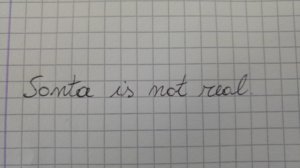 Santa is not real.